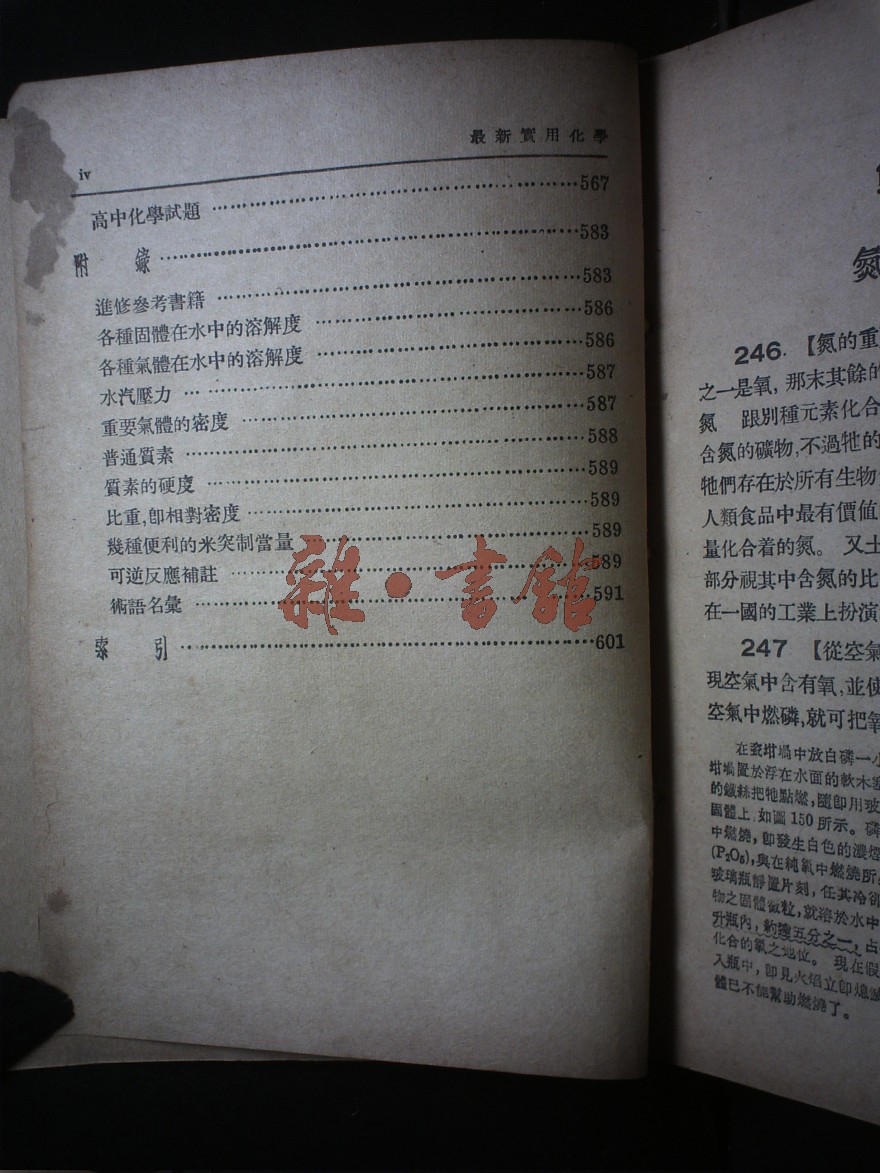 iv
最新實用化學
高中化學試題 567
附 錄 583
進修參考書籍 583
各種固體在水中的溶解度 586
各種氣體在水中的溶解度 586
水汽壓力 587
重要氣體的密度 587
普通質素 588
質素的硬度 589
比重,卽相對密度 589
幾種便利的米突制當量 589
可逆反應補註 589
術語名彙 591
索 引 601
雜·書館
氮
246. 【氮的重
之一是氧,那末其餘的
氮 跟別種元素化合
含氮的礦物,不過牠的
牠們存在於所有生物
人類食品中最有價值
量化合着的氮。 又土
部分視其中含氮的比
在一國的工業上扮演
247 【從空氣
現空氣中含有氧,並使
空氣中燃磷,就可把氧
在瓷坩堝中放白磷一小
坩堝置於浮在水面的軟木塞
的鐵絲把牠點燃,隨卽用玻
固體上,如圖150所示。磷
中燃燒,卽發生白色的濃煙
(P₂O₅),與在純氧中燃燒所
玻璃瓶靜置片刻,任其冷卻
物之固體微粒,就溶於水中
升瓶內,約達五分之一,占
化合的氧之地位。 現在假
入瓶中,卽見火焰立卽熄滅
體已不能幫助燃燒了。